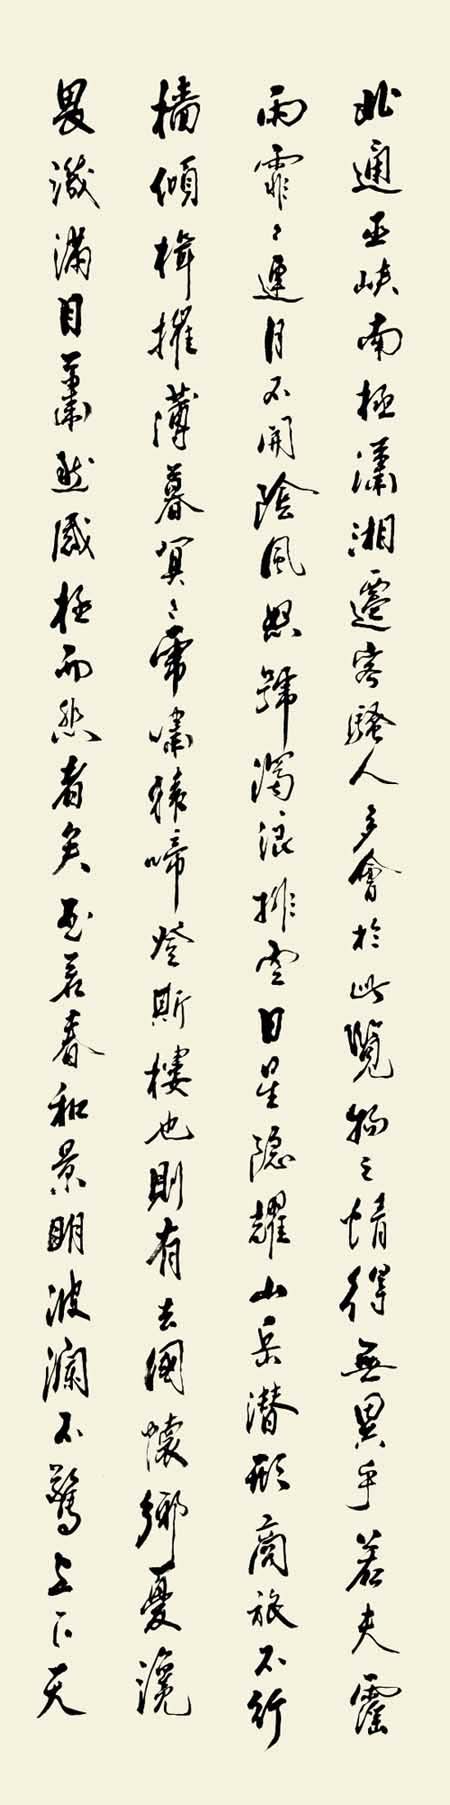 北通巫峽南極瀟湘遷客騷人多會於此覽物之情得無異乎若夫霪
雨霏〻連月不開陰風怒號濁浪排空日星隱耀山岳潛形商旅不行
檣傾楫摧薄暮冥〻虎嘯猿啼登斯樓也則有去國懷鄉憂讒
畏譏滿目蕭然感極而悲者矣至若春和景明波瀾不驚上下天